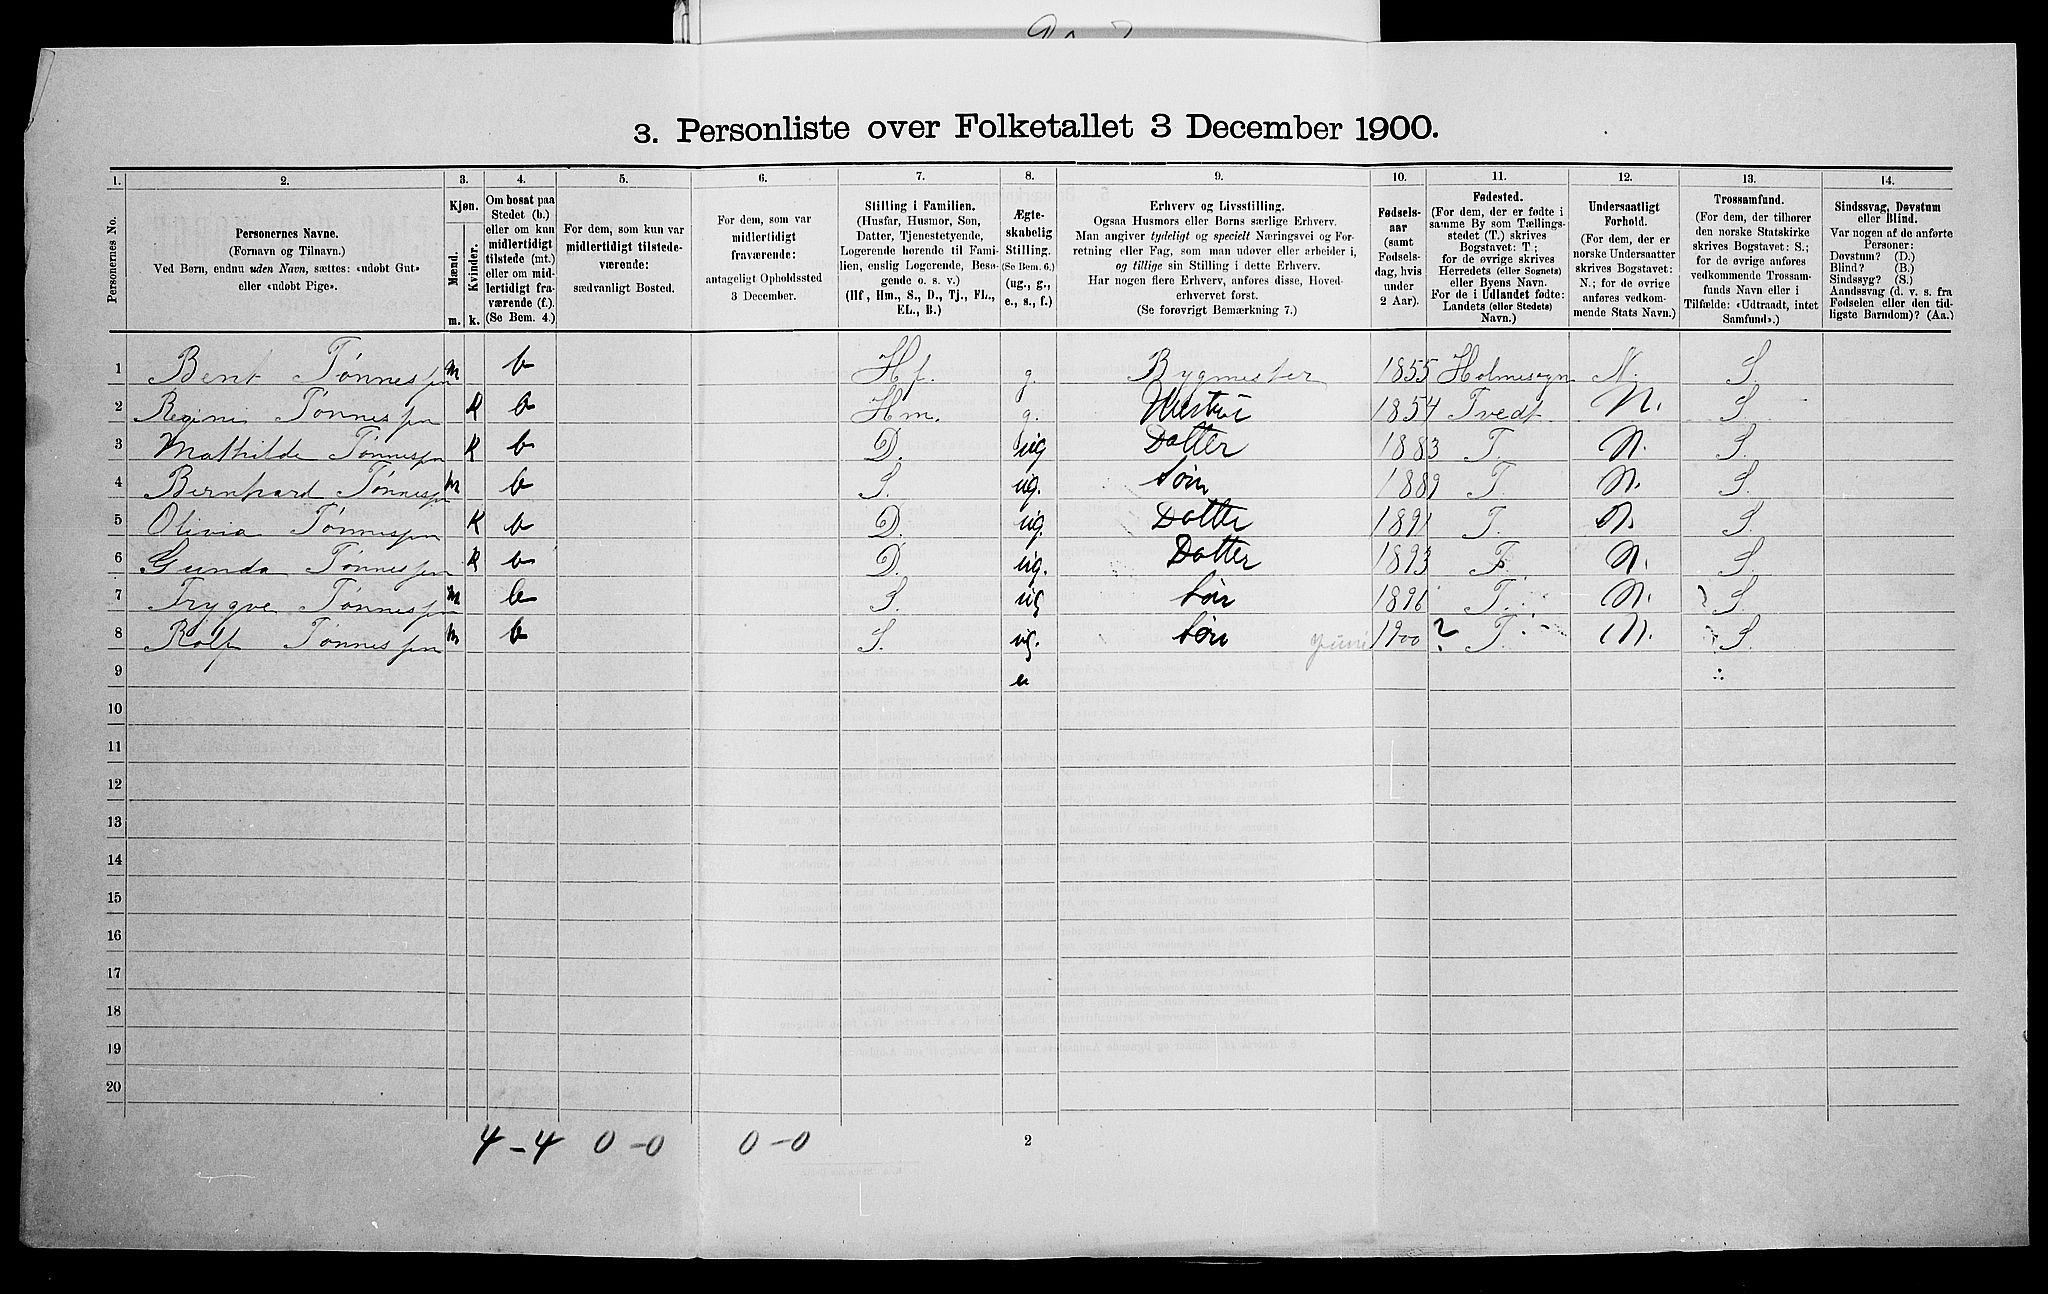 3. Personliste over Folketallet 3 December 1900.
1. 2. 3. 4. 5. 6. 7. 8. 9. 10. 11. 12. 13. 14.
Personernes No.
Personernes Navne.
(Fornavn og Tilnavn.)
Ved Børn, endnu uden Navn, sættes: «udøbt Gut»
eller «udøbt Pige».
Kjøn.
Mænd.
Kvinder.
m. k.
Om bosat paa
Stedet (b.)
eller om kun
midlertidigt
tilstede (mt.)
eller om mid-
lertidigt fra-
værende (f.).
(Se Bem. 4.)
For dem, som kun var
midlertidigt tilstede-
værende:
sædvanligt Bosted.
For dem, som var
midlertidigt
fraværende:
antageligt Opholdssted
3 December.
Stilling i Familien.
(Husfar, Husmor, Søn,
Datter, Tjenestetyende,
Logerende hørende til Fami-
lien, enslig Logerende, Besø-
gende o. s. v.)
(Hf., Hm., S., D., Tj., FL.,
EL., B.)
Ægte-
skabelig
Stilling.
(Se Bem. 6.)
(ug., g.,
e., s., f.)
Erhverv og Livsstilling.
Ogsaa Husmors eller Børns særlige Erhverv.
Man angiver tydeligt og specielt Næringsvei og For-
retning eller Fag, som man udøver eller arbeider i,
og tillige sin Stilling i dette Erhverv.
Har nogen flere Erhverv, anføres disse, Hoved-
erhvervet først.
(Se forøvrigt Bemærkning 7.)
Fødsels-
aar
(samt
Fødsels-
dag, hvis
under
2 Aar).
Fødested.
(For dem, der er fødte i
samme By som Tællings-
stedet (T.) skrives
Bogstavet: T.;
for de øvrige skrives
Herredets (eller Sognets)
eller Byens Navn.
For de i Udlandet fødte:
Landets (eller Stedets)
Navn.)
Undersaatligt
Forhold.
(For dem, der er
norske Undersaatter
skrives Bogstavet:
N.; for de øvrige
anføres vedkom-
mende Stats Navn.)
Trossamfund.
(For dem, der tilhører
den norske Statskirke
skrives Bogstavet: S.;
for de øvrige anføres
vedkommende Trossam-
funds Navn eller i
Tilfælde: «Udtraadt, intet
Samfund».)
Sindssvag, Døvstum
eller Blind.
Var nogen af de anførte
Personer:
Døvstum? (D.)
Blind? (B.)
Sindssyg? (S.)
Aandssvag (d. v. s. fra
Fødselen eller den tid-
ligste Barndom)? (Aa.)
1 Bent Tønnessen m b Hf. g. Bygmester 1855 Holmesogn N. S.
2 Regine Tønnessen K b Hm. g. Hustru 1854 Tvedt N. S.
3 Mathilde Tønnessen K b D. ug Datter 1883 T. N. S.
4 Bernhard Tønnessen m b S. ug. Søn 1889 T. N. S.
5 Olivia Tønnessen K b D. ug. Datter 1891 T. N. S.
6 Gunda Tønnessen K b D. ug. Datter 1893 T. N. S.
7 Trygve Tønnessen m b S. ug Søn 1896 T. N. S
8 Rolf Tønnessen m b S. ug. Søn Juni 1900 ? T. N. S.
9
10
11
12
13
14
15
16
17
18
19
20
4 - 4 0 - 0 0 - 0
2